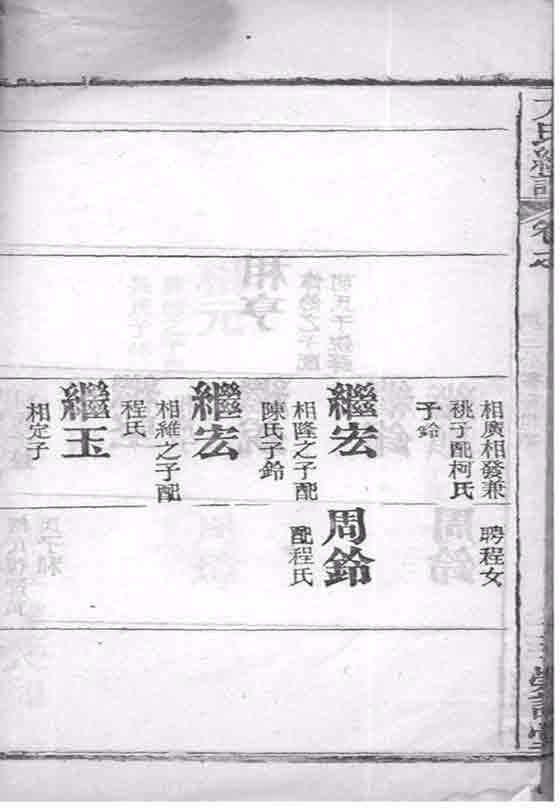 相廣相發兼
祧子配柯氏
子鈴
聘程女
繼宏
相隆之子配
陳氏子鈴
周鈴
配程氏
繼宏
相維之子配
程氏
繼玉
相定子